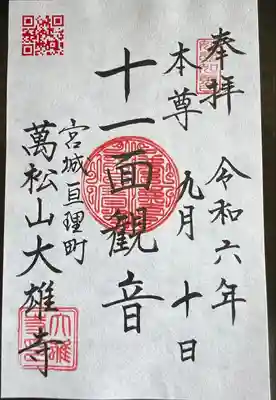 奉拝
令和六年
九月十日
本尊
十一面観音
宮城亘理町
萬松山大雄寺